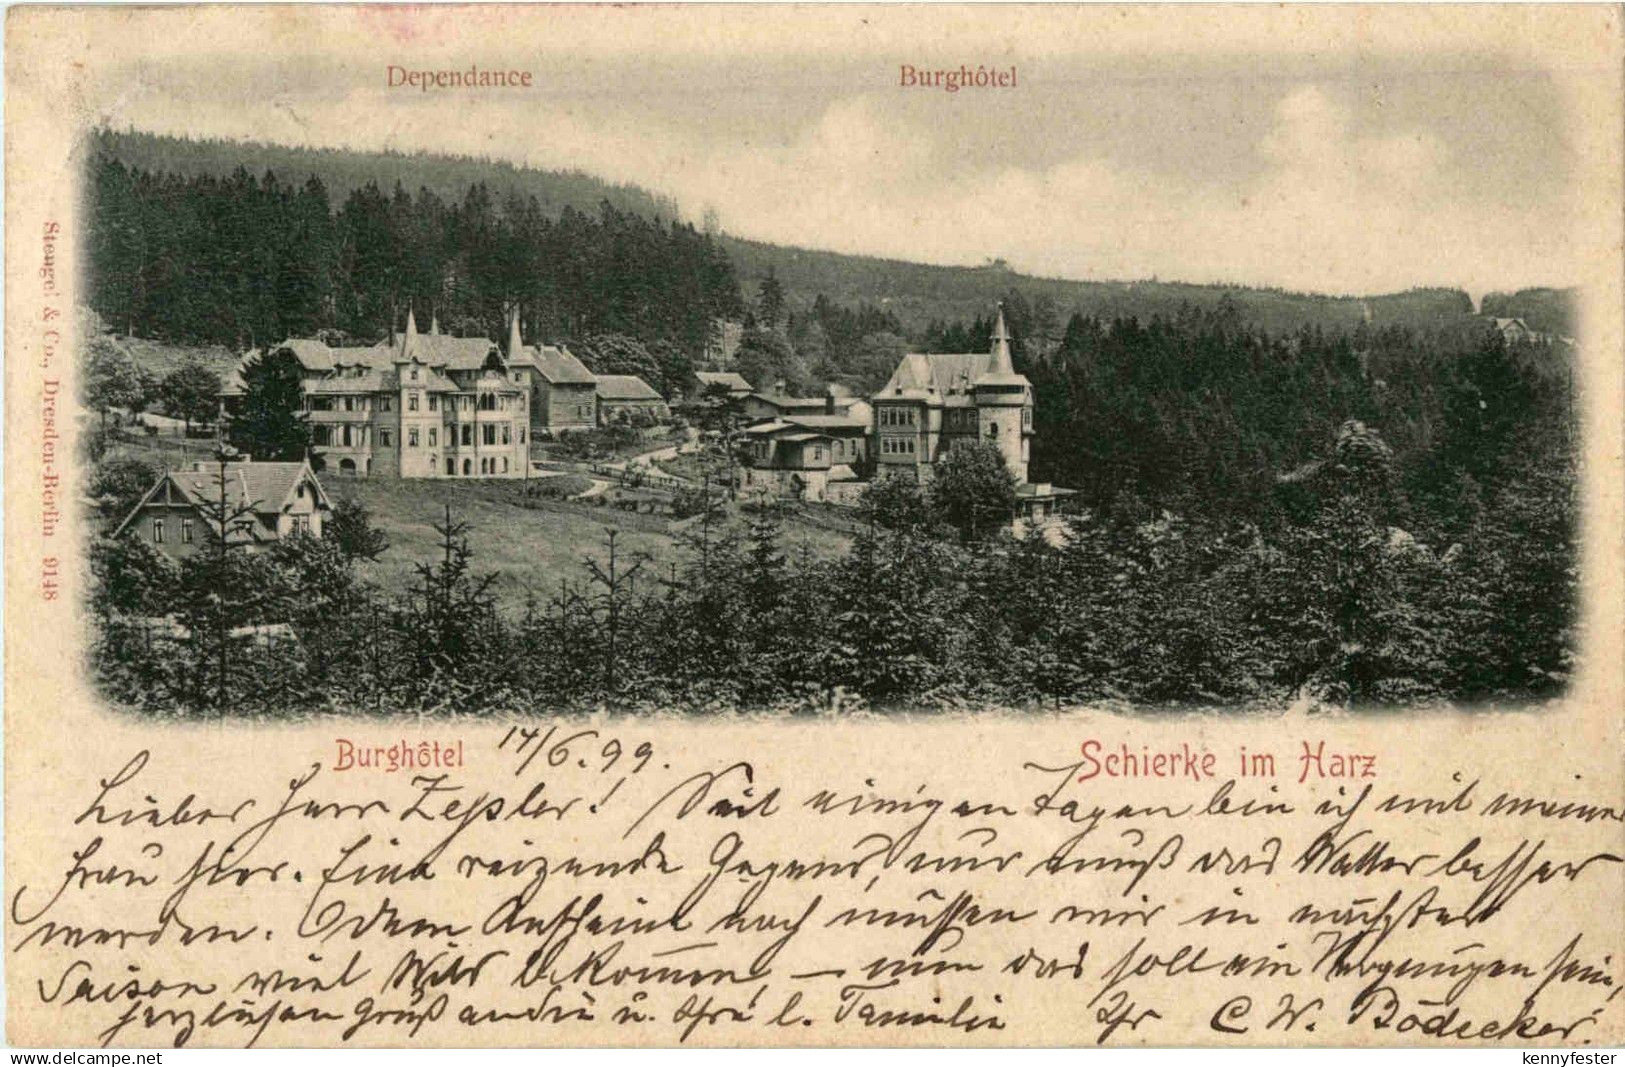 Dependance
Burghôtel
Stengel & Co., Dresden-Berlin 9148
Burghôtel
14/6.99.
Schierke im Harz
Lieber Herr Zeßler! Seit einigen Tagen bin ich mit meiner
Frau hier. Eine reizende Gegend, nur muß das Wetter besser
werden. Dem Anschein nach müssen wir in nächster
Saison viel Wild bekommen, – nun das soll ein Vergnügen sein,
herzlichen Gruß an Sie u. Ihre l. Familie Ihr C. W. Bödecker.
www.delcampe.net
kennyfester